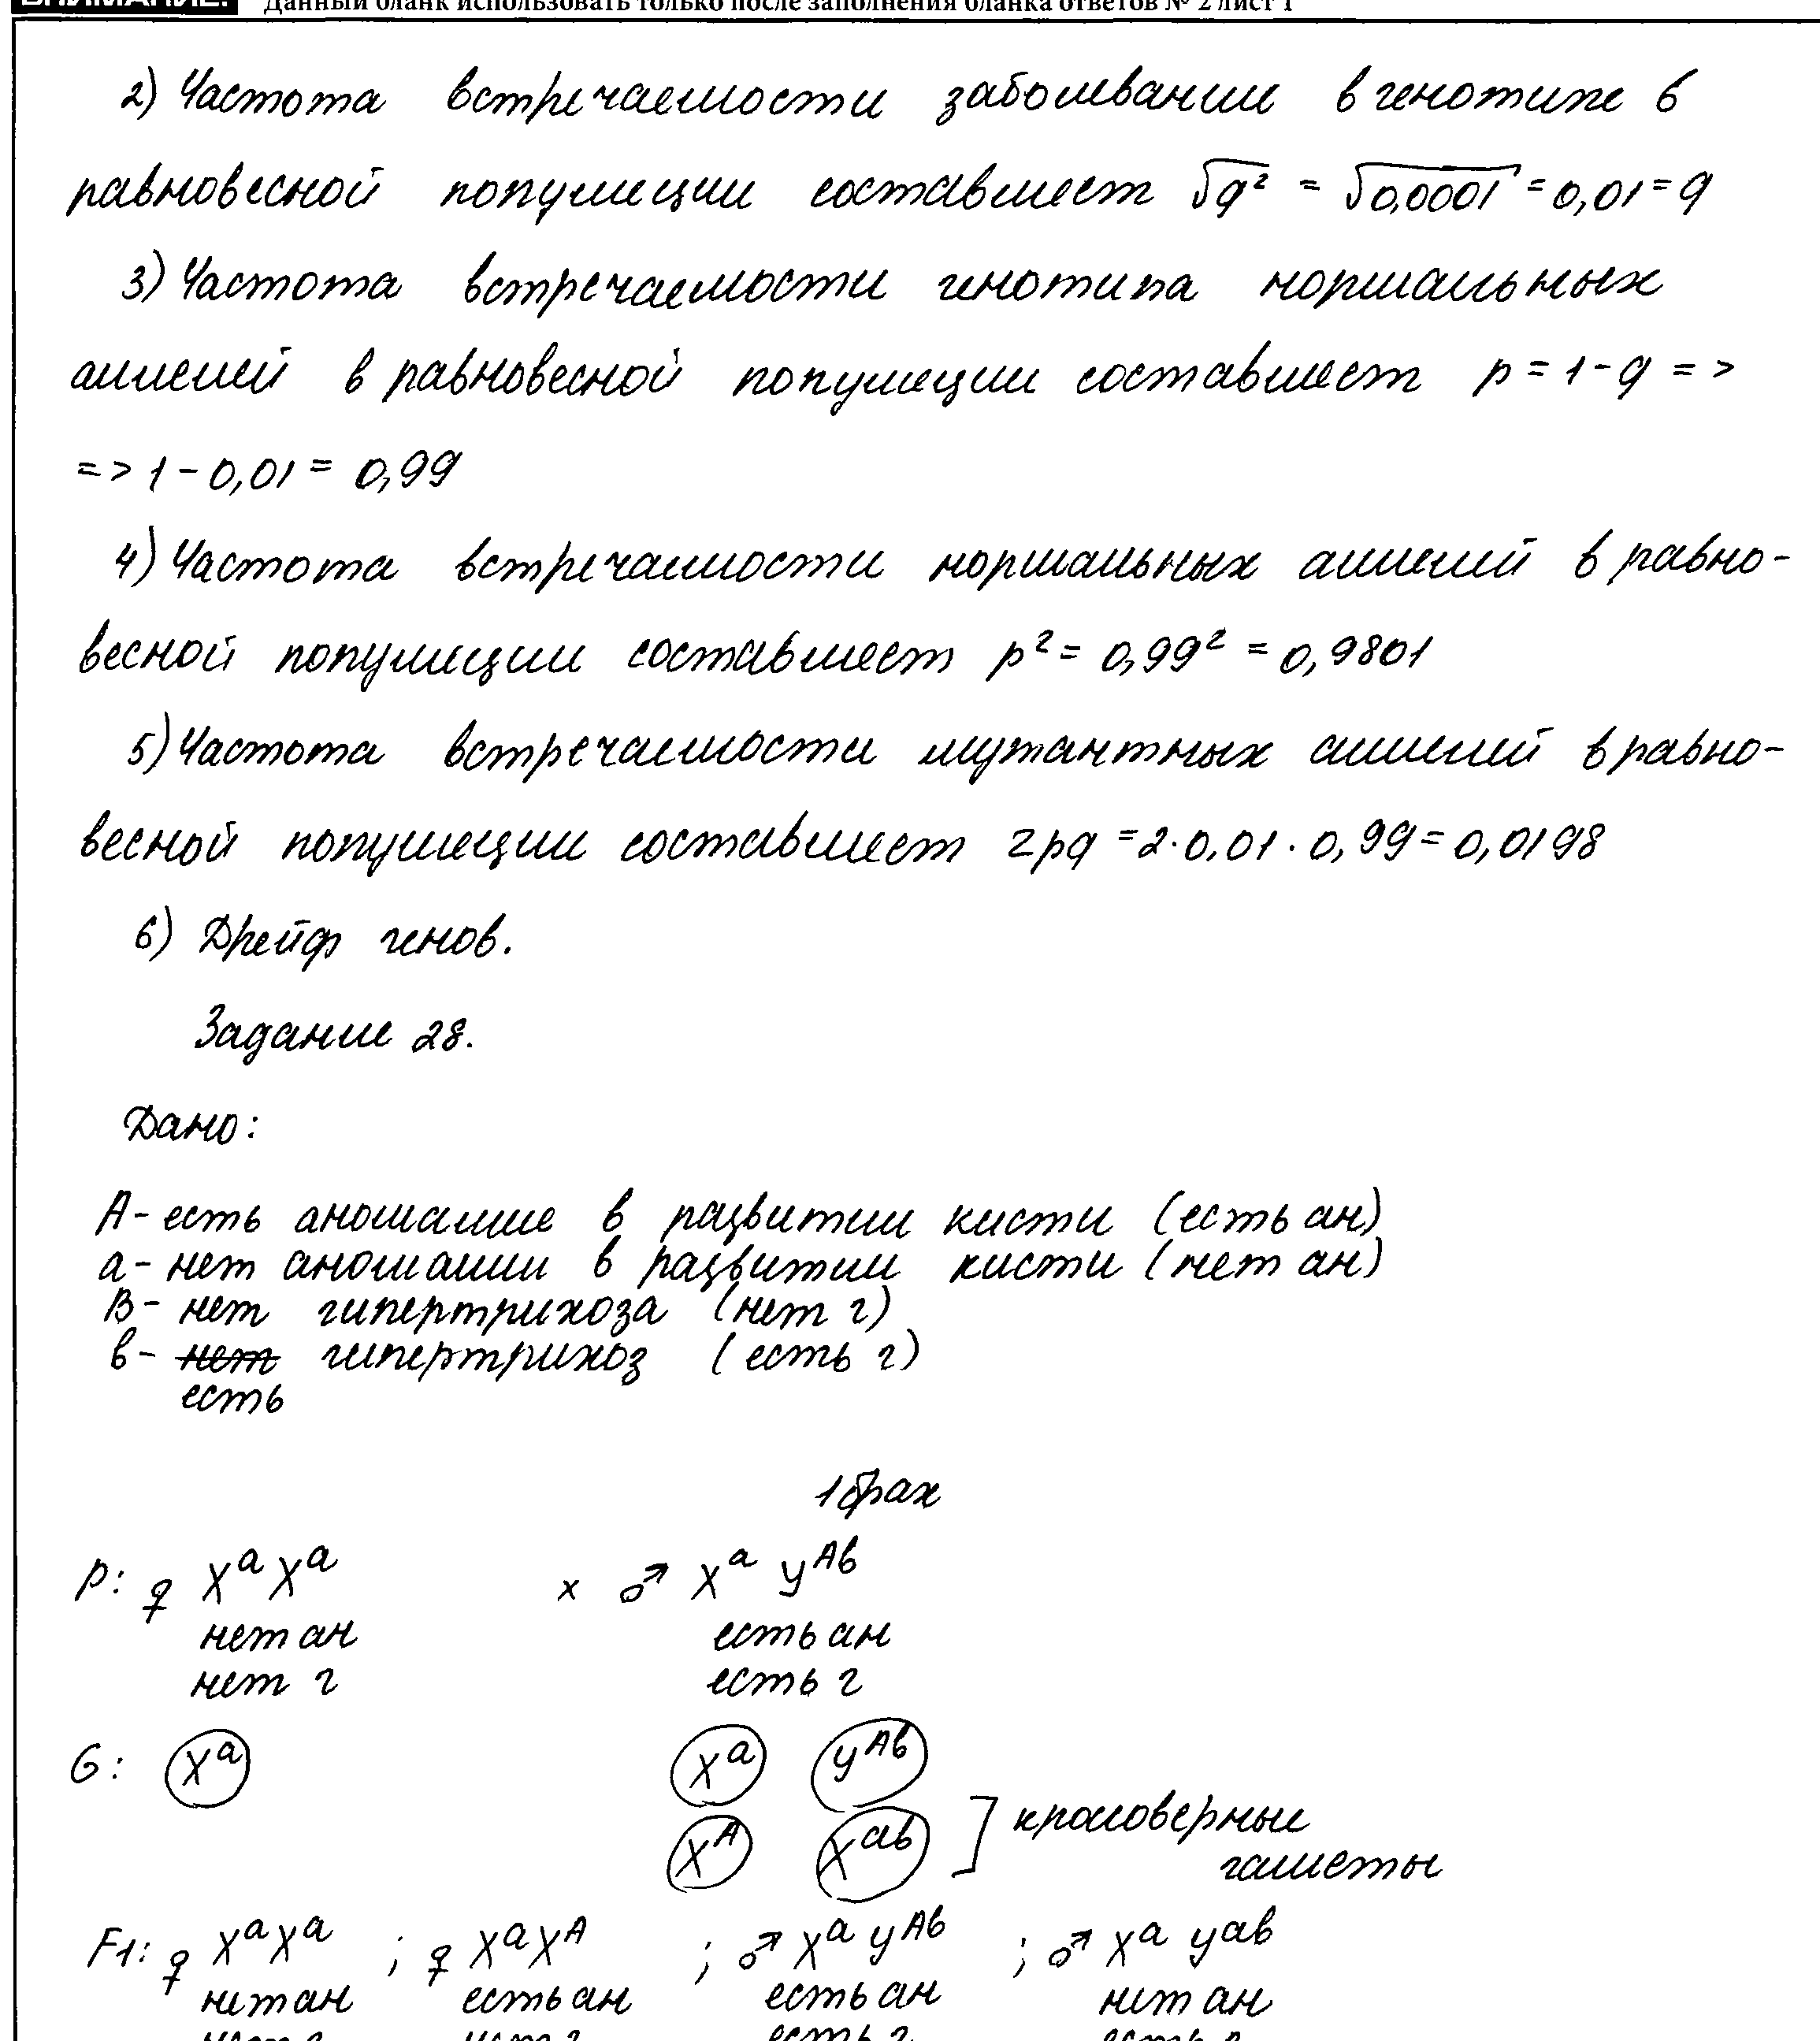 ВНИМАНИЕ! Данный бланк использовать только после заполнения бланка ответов № 2 лист 1
2) Частота встречаемости заболевании в генотипе в
равновесной популяции составляет √q² = √0,0001 = 0,01 = q
3) Частота встречаемости генотипа нормальных
аллелей в равновесной популяции составляет p = 1 - q = >
= > 1 - 0,01 = 0,99
4) Частота встречамости нормальных аллелей в равно-
весной популяции составляет p² = 0,99² = 0,9801
5) Частота встречаемости мутантных аллелей в равно-
весной популяции составляет 2pq = 2·0,01·0,99 = 0,0198
6) Дрейф генов.
Задание 28.
Дано:
А - есть аномалие в развитии кисти (есть ан)
а - нет аномалии в развитии кисти (нет ан)
В - нет гипертрихоза (нет г)
в - нет гипертрихоз (есть г)
есть
1 брак
P: ♀ XᵃXᵃ x ♂ Xᵃ Yᴬᵇ
нет ан есть ан
нет г есть г
G: Xᵃ Xᵃ Yᴬᵇ
Xᴬ Xᵃᵇ ] кроссоверные
гаметы
F1: ♀ XᵃXᵃ ; ♀ XᵃXᴬ ; ♂ Xᵃ Yᴬᵇ ; ♂ Xᵃ Yᵃᵇ
нет ан есть ан есть ан нет ан
нет г нет г есть г есть г